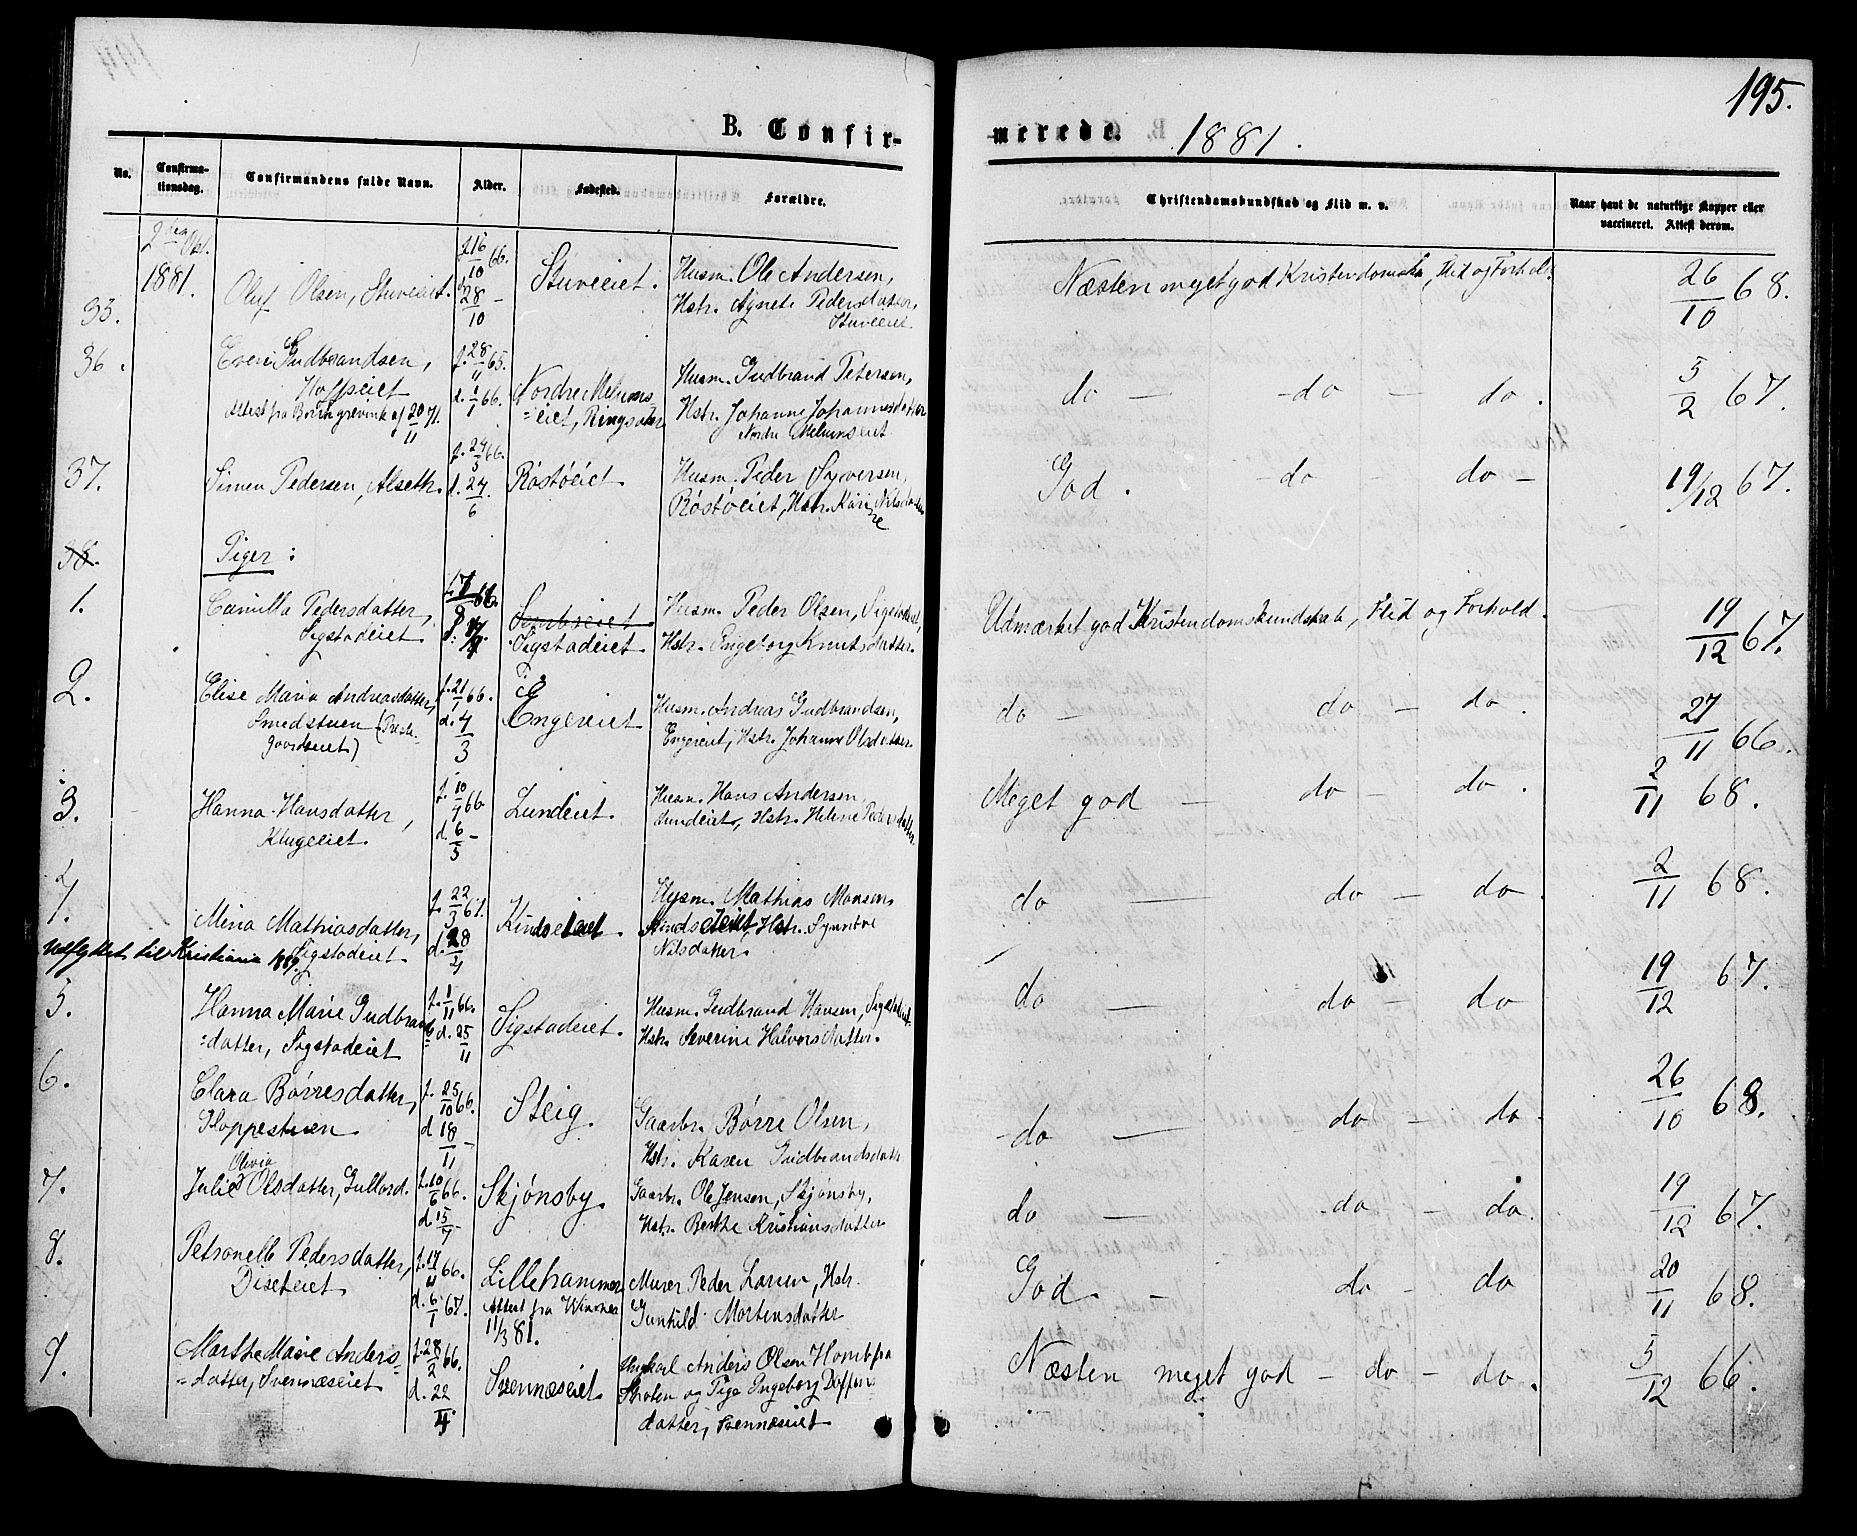 195.
B. Confir-
merede.
1881.
No.
Confirma-
tionsdag.
Confirmandens fulde Navn.
Alder.
Fødested.
Forældre.
Christendomskundskab og Flid m. v.
Naar havt de naturlige Kopper eller
vaccineret. Attest derom.
2den Okt.
1881.
35.
Oluf Olsen, Stuveeiet.
f. 16/10 66.
d. 28/10 –
Stuveeiet.
Husm. Ole Andersen,
Hstr. Agnete Pedersdatter,
Stuveeiet.
Næsten meget god Kristendomsk, Flid og Forhold.
26/10 68.
36.
Even Gudbrandsen,
Hoffseiet
Attest fra 20/11 71.
f. 28/11 65.
d. 1/1 66.
Nordre Melums-
=eiet, Ringsaker
Husm. Gudbrand Petersen,
Hstr. Johanne Johannesdatter
Nordre Melumseiet
do – do – do.
5/2 67.
37.
Simen Pedersen, Alseth.
f. 24/5 66.
d. 24/6
Röstöeiet.
Husm. Peder Syversen,
Röstöeiet, Hstr. Karine Nilsdatter
God. – do – do –
19/12 67.
38.
Piger:
1.
Camilla Pedersdatter,
Sigstadeiet.
Sigstadeiet.
Husm. Peder Olsen, Sigstadeiet,
Hstr. Engeborg Knutsdatter.
Udmærket god Kristendomskundskab, Flid og Forhold.
19/12 67.
2.
Elise Maria Andreasdatter,
Smedstuen (Preste-
gaardseiet)
f. 21/1 66.
d. 4/3
Engereiet
Husm. Andreas Gudbrandsen,
Engereiet, Hstr. Johanne Olsdatter.
do – do – do.
27/11 66.
3.
Hanna Hansdatter,
Klugeeiet.
f. 10/4 66
d. 6/5 –
Lundeiet.
Husm. Hans Andersen
Lundeiet, Hstr. Helene Pedersdatter.
Meget god – do – do.
2/11 68.
4.
Mina Mathiasdatter,
Sigstadeiet.
Udflyttet til Kristiania
f. 22/3 67.
d. 28/4
Kindseteiet.
Husm. Mathias Monsen,
Kindseteiet, Hstr. Synnöve
Nilsdatter.
do – do – do
2/11 68.
5.
Hanna Marie Gudbrands
=datter, Sigstadeiet
f. 1/11 66.
d. 25/11
Sigstadeiet.
Husm. Gudbrand Hansen, Sigstadeiet.
Hstr. Severine Halvorsdatter.
do – do – do
19/12 67.
6.
Clara Børresdatter,
Kloppestuen
f. 25/10 66.
d 18/11 –
Steig.
Gaarbr. Börre Olsen,
Hstr. Karen Gudbrandsdatter
do – do – do.
26/10 68.
7.
Olivia
Julie Olsdatter, Gullord.
f. 10/6 66.
d 15/7 –
Skjönsby.
Gaarbr. Ole Jensen, Skjönsby,
Hstr. Berthe Kristiansdatter
do – do – do.
19/12 67.
8.
Petronelle Pedersdatter,
Diseteiet.
d. 6/1 67.
Lillehammer
Attest fra
11/3 81.
Murer Peder Larsen, Hstr.
Gunhild Mortensdatter
God. – do – do
20/11 68.
9.
Marthe Marie Anders-
=datter, Svennæseiet
f. 28/2 66.
d. 22/4
Svennæseiet.
Ungkarl Anders Olsen Homb fra
og Pige Ingeborg
datter, Svennæseiet
Næsten meget god – do – do.
5/12 66.